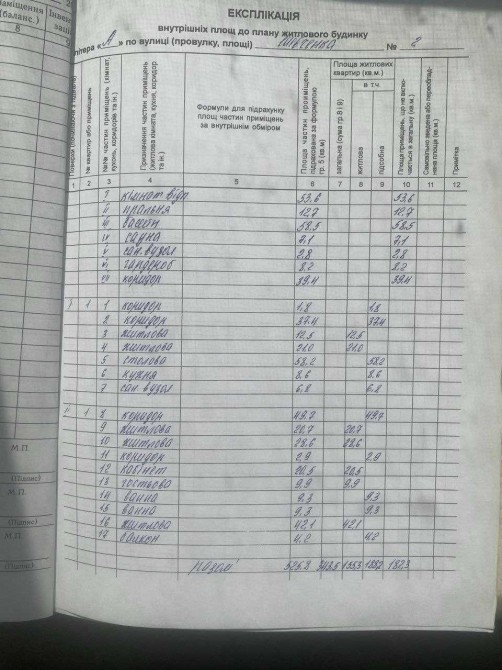 ЕКСПЛІКАЦІЯ
внутрішніх площ до плану житлового будинку
літера «А» по вулиці (провулку, площі) № 2
Площа житлових квартир (кв.м.)
в т.ч.
№ квартир або приміщень
№№ частин приміщень (кімнат, кухонь, коридорів та ін.)
Призначення частин приміщень (житлова кімната, кухня, коридор та ін.)
Формули для підрахунку площ частин приміщень за внутрішнім обміром
Площа частин приміщень, підрахована за формулою гр. 5 (кв.м)
загальна (сума гр 8 і 9)
житлова
підсобна
Площа приміщень, що не включається в загальну (кв.м)
Самовільно зведена або переобладнана площа (кв.м)
Примітка
1 2 3 4 5 6 7 8 9 10 11 12
I кімнат. відп. 53.6 53.6
II пральня 12.7 12.7
III басейн 58.5 58.5
IV сауна 7.1 7.1
V сан. вузол 2.8 2.8
VI гардероб 8.2 8.2
VII коридор 39.4 39.4
I 1 1 коридор 1.8 1.8
2 коридор 37.4 37.4
3 житлова 12.5 12.5
4 житлова 21.0 21.0
5 столова 58.2 58.2
6 кухня 8.6 8.6
7 сан. вузол 6.8 6.8
II 1 8 коридор 49.7
9 житлова 20.7 20.7
10 житлова 28.6 28.6
11 коридор 2.9 2.9
12 кабінет 20.5 20.5
13 гостьова 9.9 9.9
14 ванна 9.3 9.3
15 ванна 9.3 9.3
16 житлова 42.1 42.1
17 балкон 4.2 4.2
Разом: 182.3
М.П.
(Підпис)
М.П.
(Підпис)
М.П.
(Підпис)